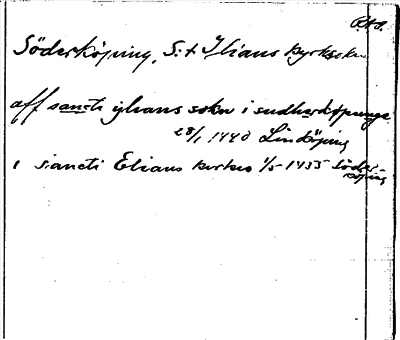 Söderköping, S:t Ilians kyrksoken
aff sancti ylians sokn i sudherköpunge
28/1 1440 Linköping
i sancti Elians kirkio 1/5 1455 Söder-
köping